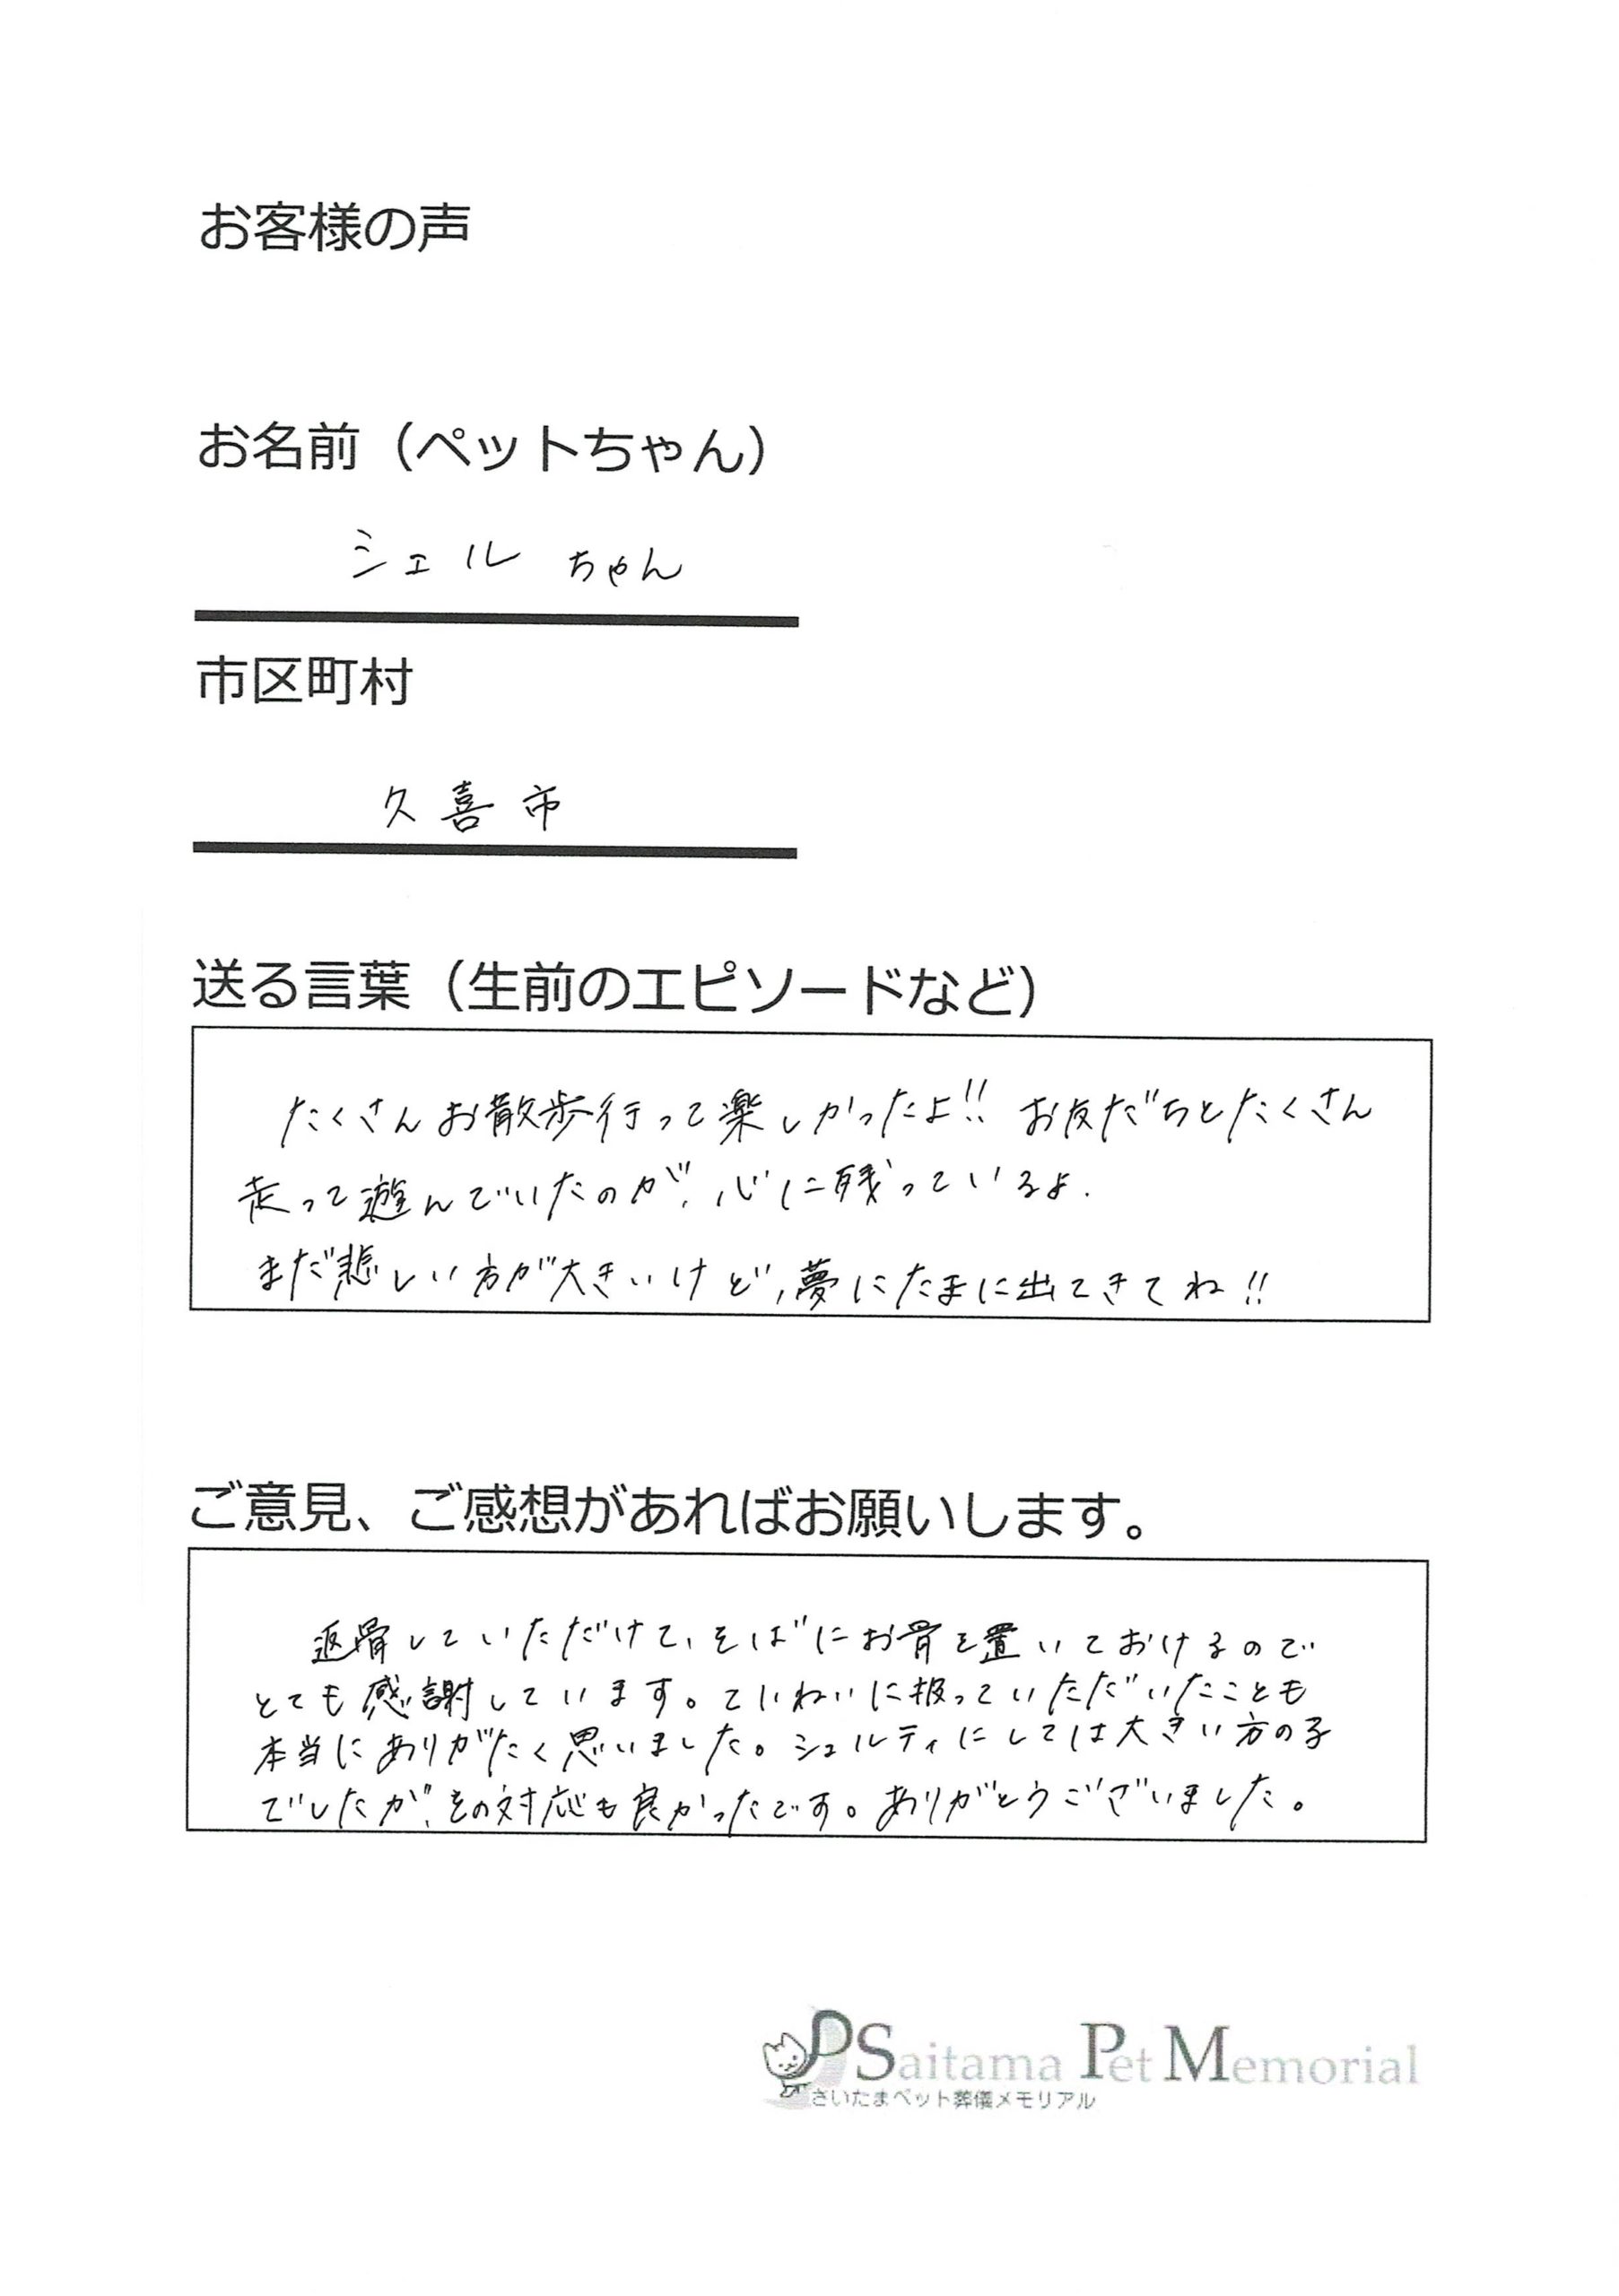 お客様の声
お名前（ペットちゃん）
シェル ちゃん
市区町村
久喜市
送る言葉（生前のエピソードなど）
たくさんお散歩行って楽しかったよ!! お友だちとたくさん
走って遊んでいたのが、心に残っているよ.
まだ悲しい方が大きいけど、夢にたまに出てきてね!!
ご意見、ご感想があればお願いします。
返骨していただけて、そばにお骨を置いておけるので
とても感謝しています。ていねいに扱っていただいたことも
本当にありがたく思いました。シェルティにしては大きい方の子
でしたが、その対応も良かったです。ありがとうございました。
PSaitama Pet Memorial
さいたまペット葬儀メモリアル